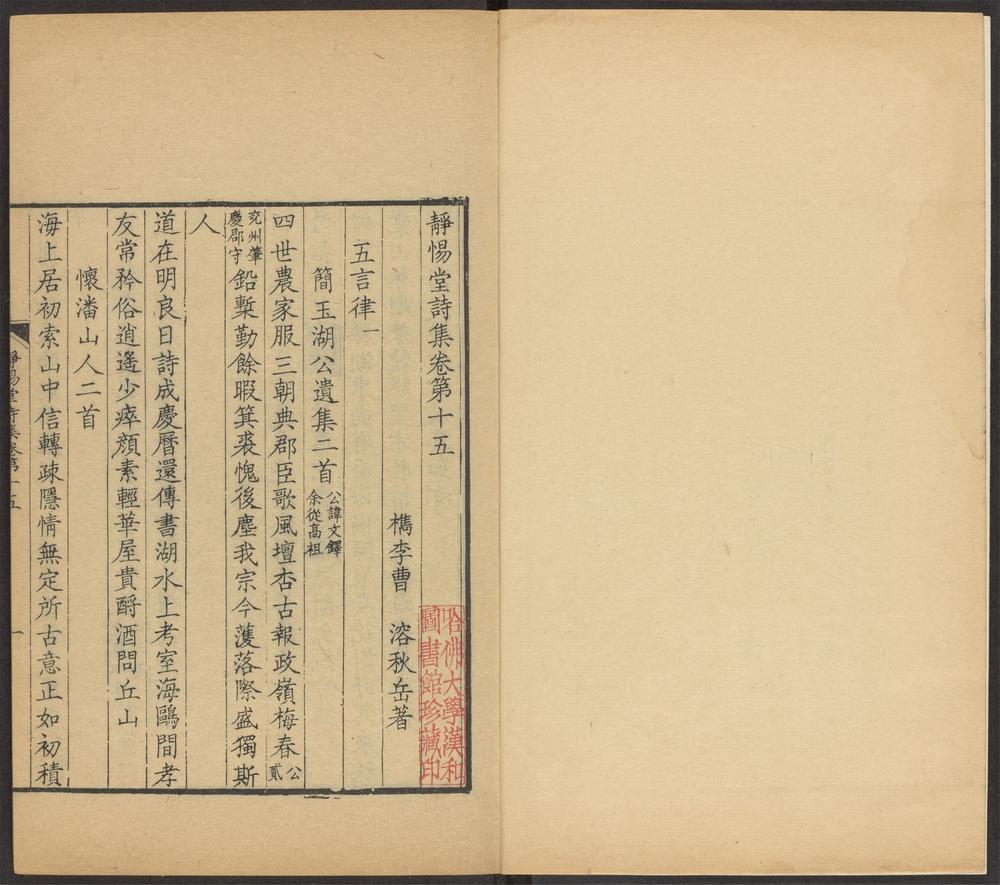 靜惕堂詩集卷第十五
檇李曹 溶秋岳著
五言律一
簡玉湖公遺集二首公諱文鐸余從高祖
四世農家服三朝典郡臣歌風壇杏古報政嶺梅春公貳
兖州肇慶郡守鉛槧勤餘暇箕裘愧後塵我宗今濩落際盛獨斯
人
道在明良日詩成慶曆還傳書湖水上考室海鷗間孝
友常矜俗逍遙少瘁顏素輕華屋貴酹酒問丘山
懷潘山人二首
海上居初索山中信轉疎隱情無定所古意正如初積
靜惕堂詩集卷第十五
一
哈佛大學漢和圖書館珍藏印